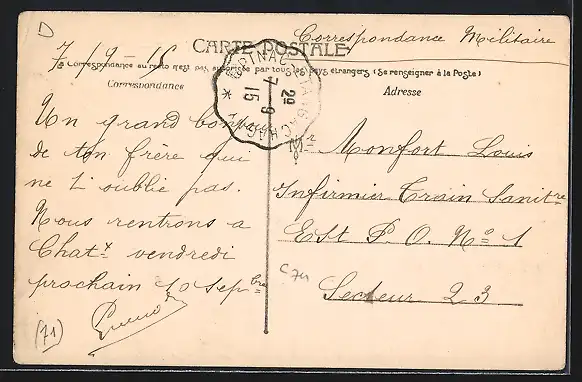 D
Correspondance Militaire
7/9-15
CARTE POSTALE
La Correspondance au recto n'est pas autorisée par tous les pays étrangers (Se renseigner à la Poste)
Correspondance
Adresse
EPINAC
CHAGNY
2º
7-9
15
Un grand bonjour
de ton frère qui
ne t'oublie pas.
Nous rentrons a
Chat.x vendredi
prochain 10 Sepbre
Mr
Monfort Louis
Infirmier Train Sanitre
Est P. O. Nº 1
Secteur 23
C 711
(71)